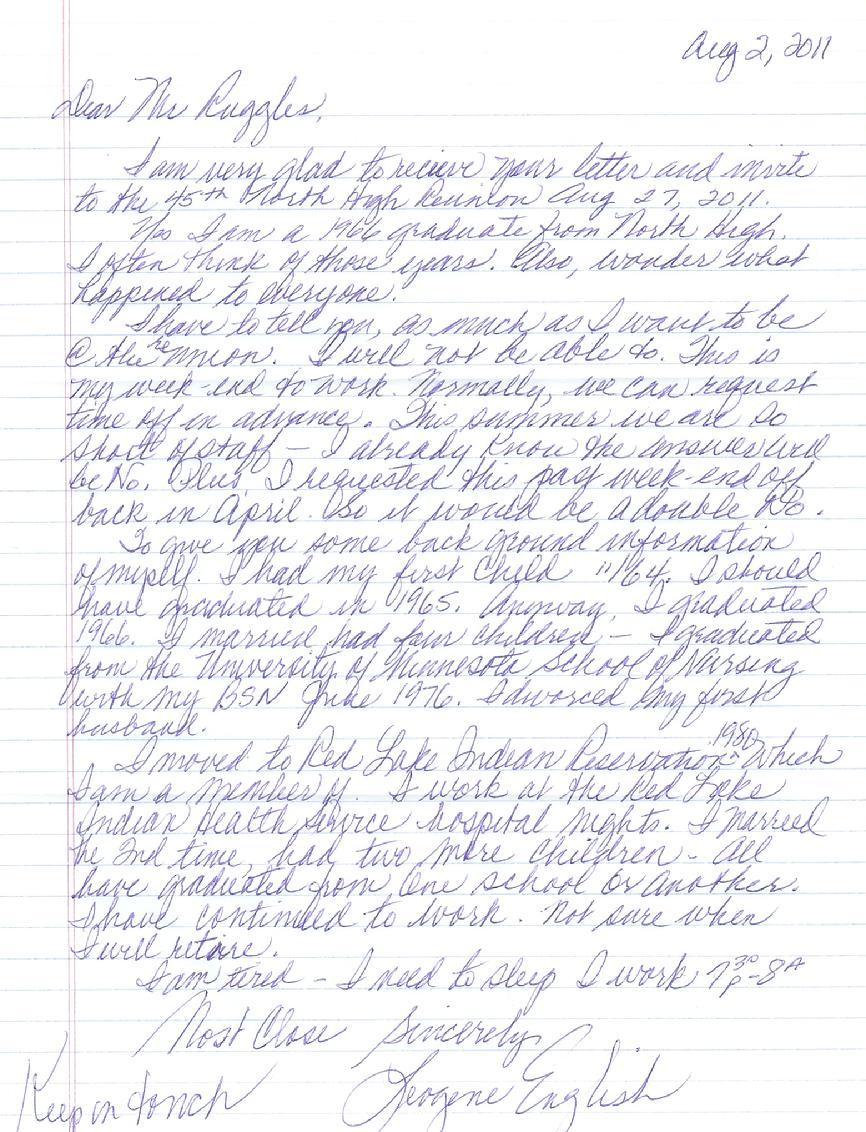 Aug 2, 2011
Dear Mr Ruggles,
I am very glad to recieve your letter and invite
to the 45th North High Reunion Aug 27, 2011.
Yes I am a 1966 graduate from North High.
I often think of those years. Also, wonder what
happened to everyone.
I have to tell you, as much as I want to be
@ the reunion. I will not be able to. This is
my week-end to work. Normally, we can request
time off in advance. This summer we are so
short of staff – I already know the answer will
be No. Plus, I requested this past week-end off
back in April. So it would be a double No.
To give you some back ground information
of myself. I had my first child 11/64. I should
have graduated in 1965. Anyway, I graduated
1966. I married, had four children – I graduated
from the University of Minnesota School of Nursing
with my BSN June 1976. I divorced my first
husband.
I moved to Red Lake Indian Reservation 1980 which
I am a member of. I work at the Red Lake
Indian Health Service hospital nights. I married
the 2nd time, had two more children - All
have graduated from one school or another.
I have continued to work. Not sure when
I will retire.
I am tired – I need to sleep I work 7 30 p - 8 A
Most Close Sincerely
Keep in touch English